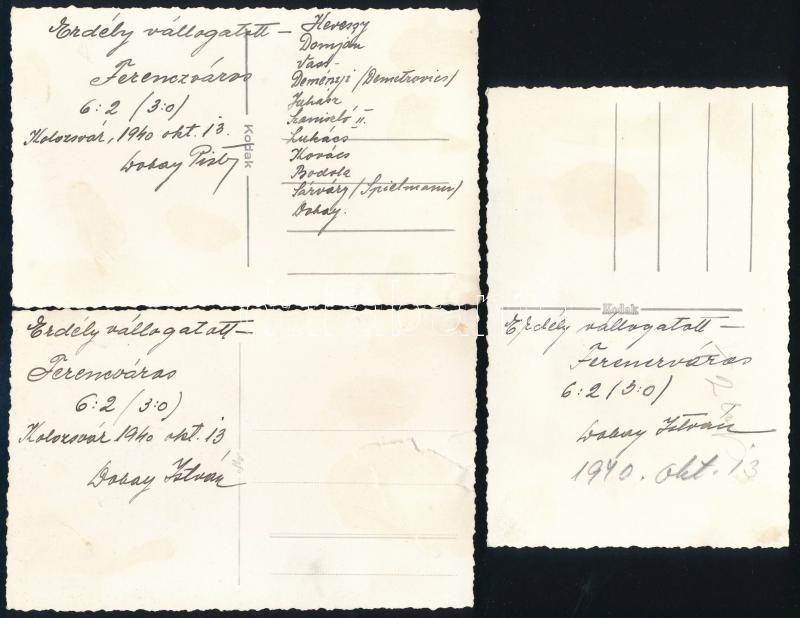 Erdély vállogatott –
Ferenczváros
6:2 (3:0)
Kolozsvár, 1940 okt. 13.
Dobay Pisty
Kodak
Kevessy
Domján
Vass
Deményi (Demetrovics)
Juhász
Szaniszló II.
Lukács
Kovács
Bodola
Sárváry (Spielmann)
Dobay.
Erdély vállogatott –
Ferencváros
6:2 (3:0)
Kolozsvár 1940 okt. 13
Dobay István
Kodak
Erdély vállogatott –
Ferencváros
6:2 (3:0)
Dobay István
1940. okt. 13